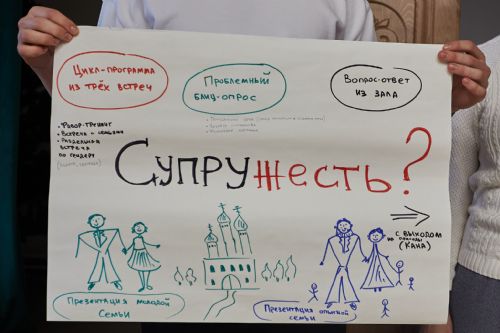 Цикл-программа
из трёх встреч
Проблемный
блиц-опрос
Вопрос-ответ
из зала
• Встреча с семьями
встреча
по гендеру
Супружесть?
с выходом
(Кана)
Презентация молодой
семьи
Презентация опытной
семьи